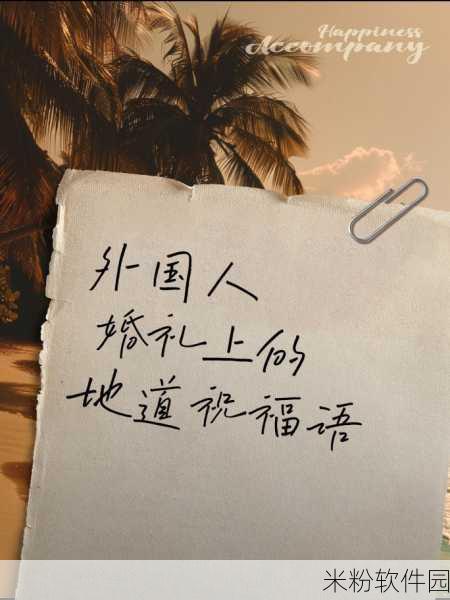 Happiness
Accompany
外国人
婚礼上的
地道祝福语
米粉软件园